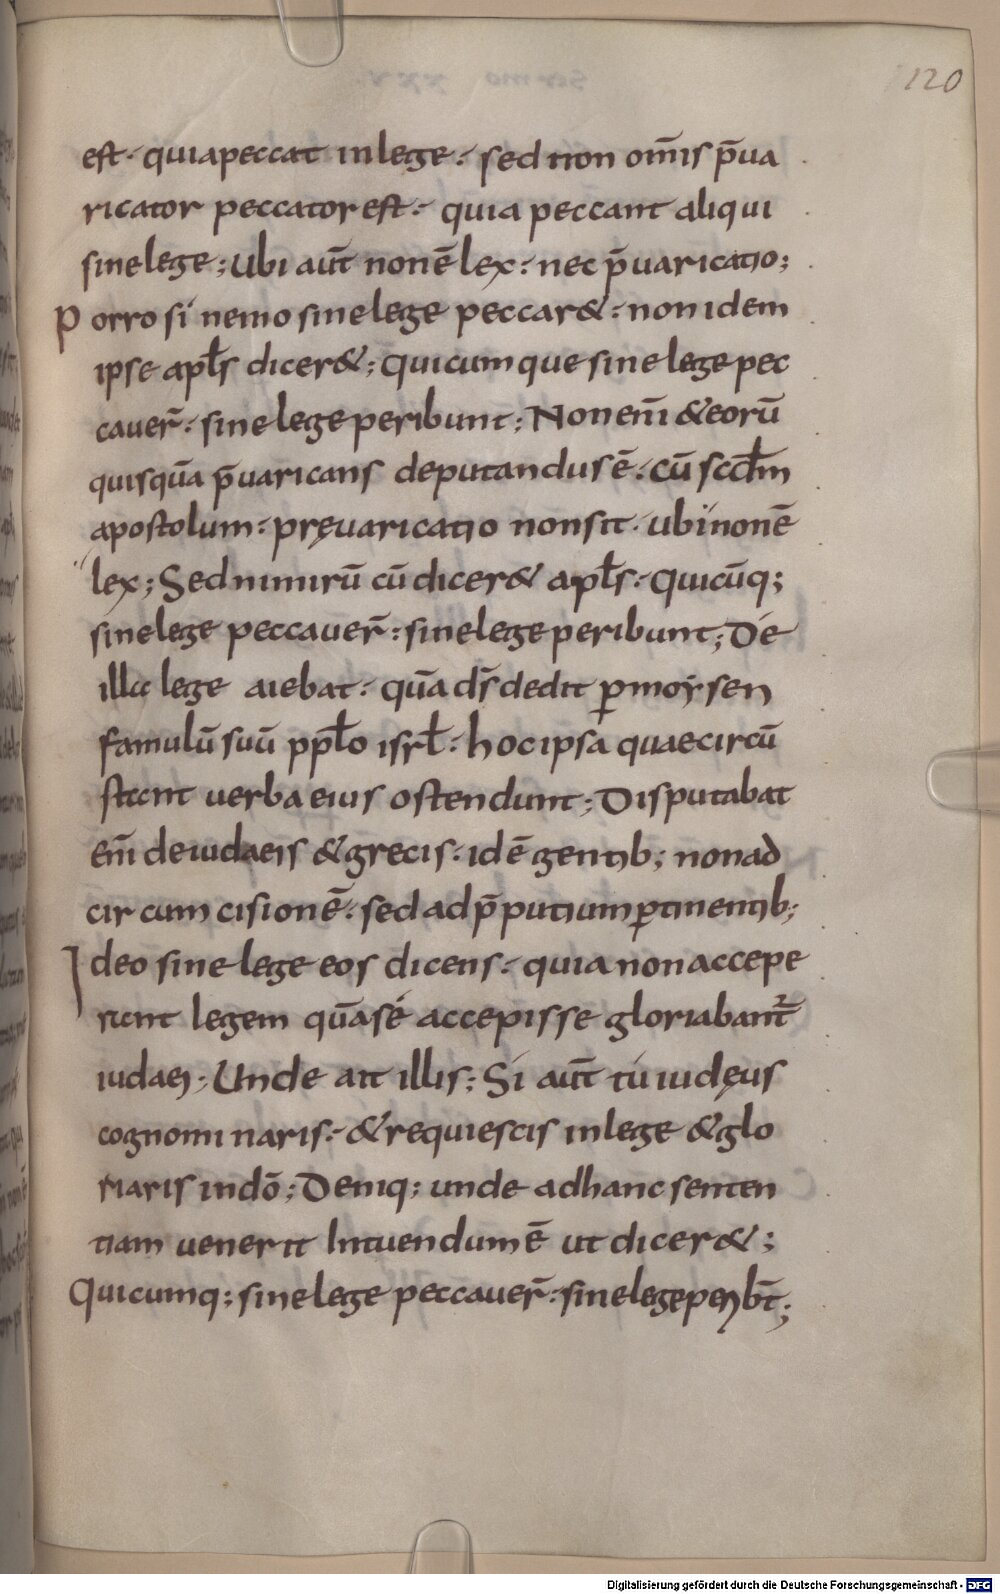 120
est· quia peccat in lege·: sed non om̄is p̄ua
ricator peccator est·: quia peccant aliqui
sine lege; Ubi aut̄ non ē lex·: nec p̄uaricatio;
Porro si nemo sine lege peccar&·: non idem
ipse apl̄s dicer&; Quicumque sine lege pec
cauer̄·: sine lege peribunt; Non eni̅ & eorū
quisquā p̄uaricans deputandus ē·: cū scd̄m
apostolum·: pręuaricatio non sit· ubi non ē
lex; Sed nimirū cū dicer& apl̄s·: quicūq;
sine lege peccauer̄·: sine lege peribunt; De
illa lege aiebat·: quā d̄s dedit ꝑ moysen
famulū suū ppl̄o isrl̄·: hoc ipsa quae circū
stant uerba eius ostendunt; Disputabat
eni̅ de iudaeis & grecis·: id ē gentib; non ad
circumcisionē·: sed ad p̄putium ꝑtinentib;
Ideo sine lege eos dicens·: quia non accepe
runt legem quā sé accepisse gloriabant̄
iudaei; Unde ait illis; Si aut̄ tú iudęus
cognominaris·: & requiescis in lege & glo
riaris in dō; Deniq; unde ad hanc senten
tiam uenerit Intuendum ē ut dicer&;
Quicumq; sine lege peccauer̄·: sine lege perib̄t;
Digitalisierung gefördert durch die Deutsche Forschungsgemeinschaft - DFG